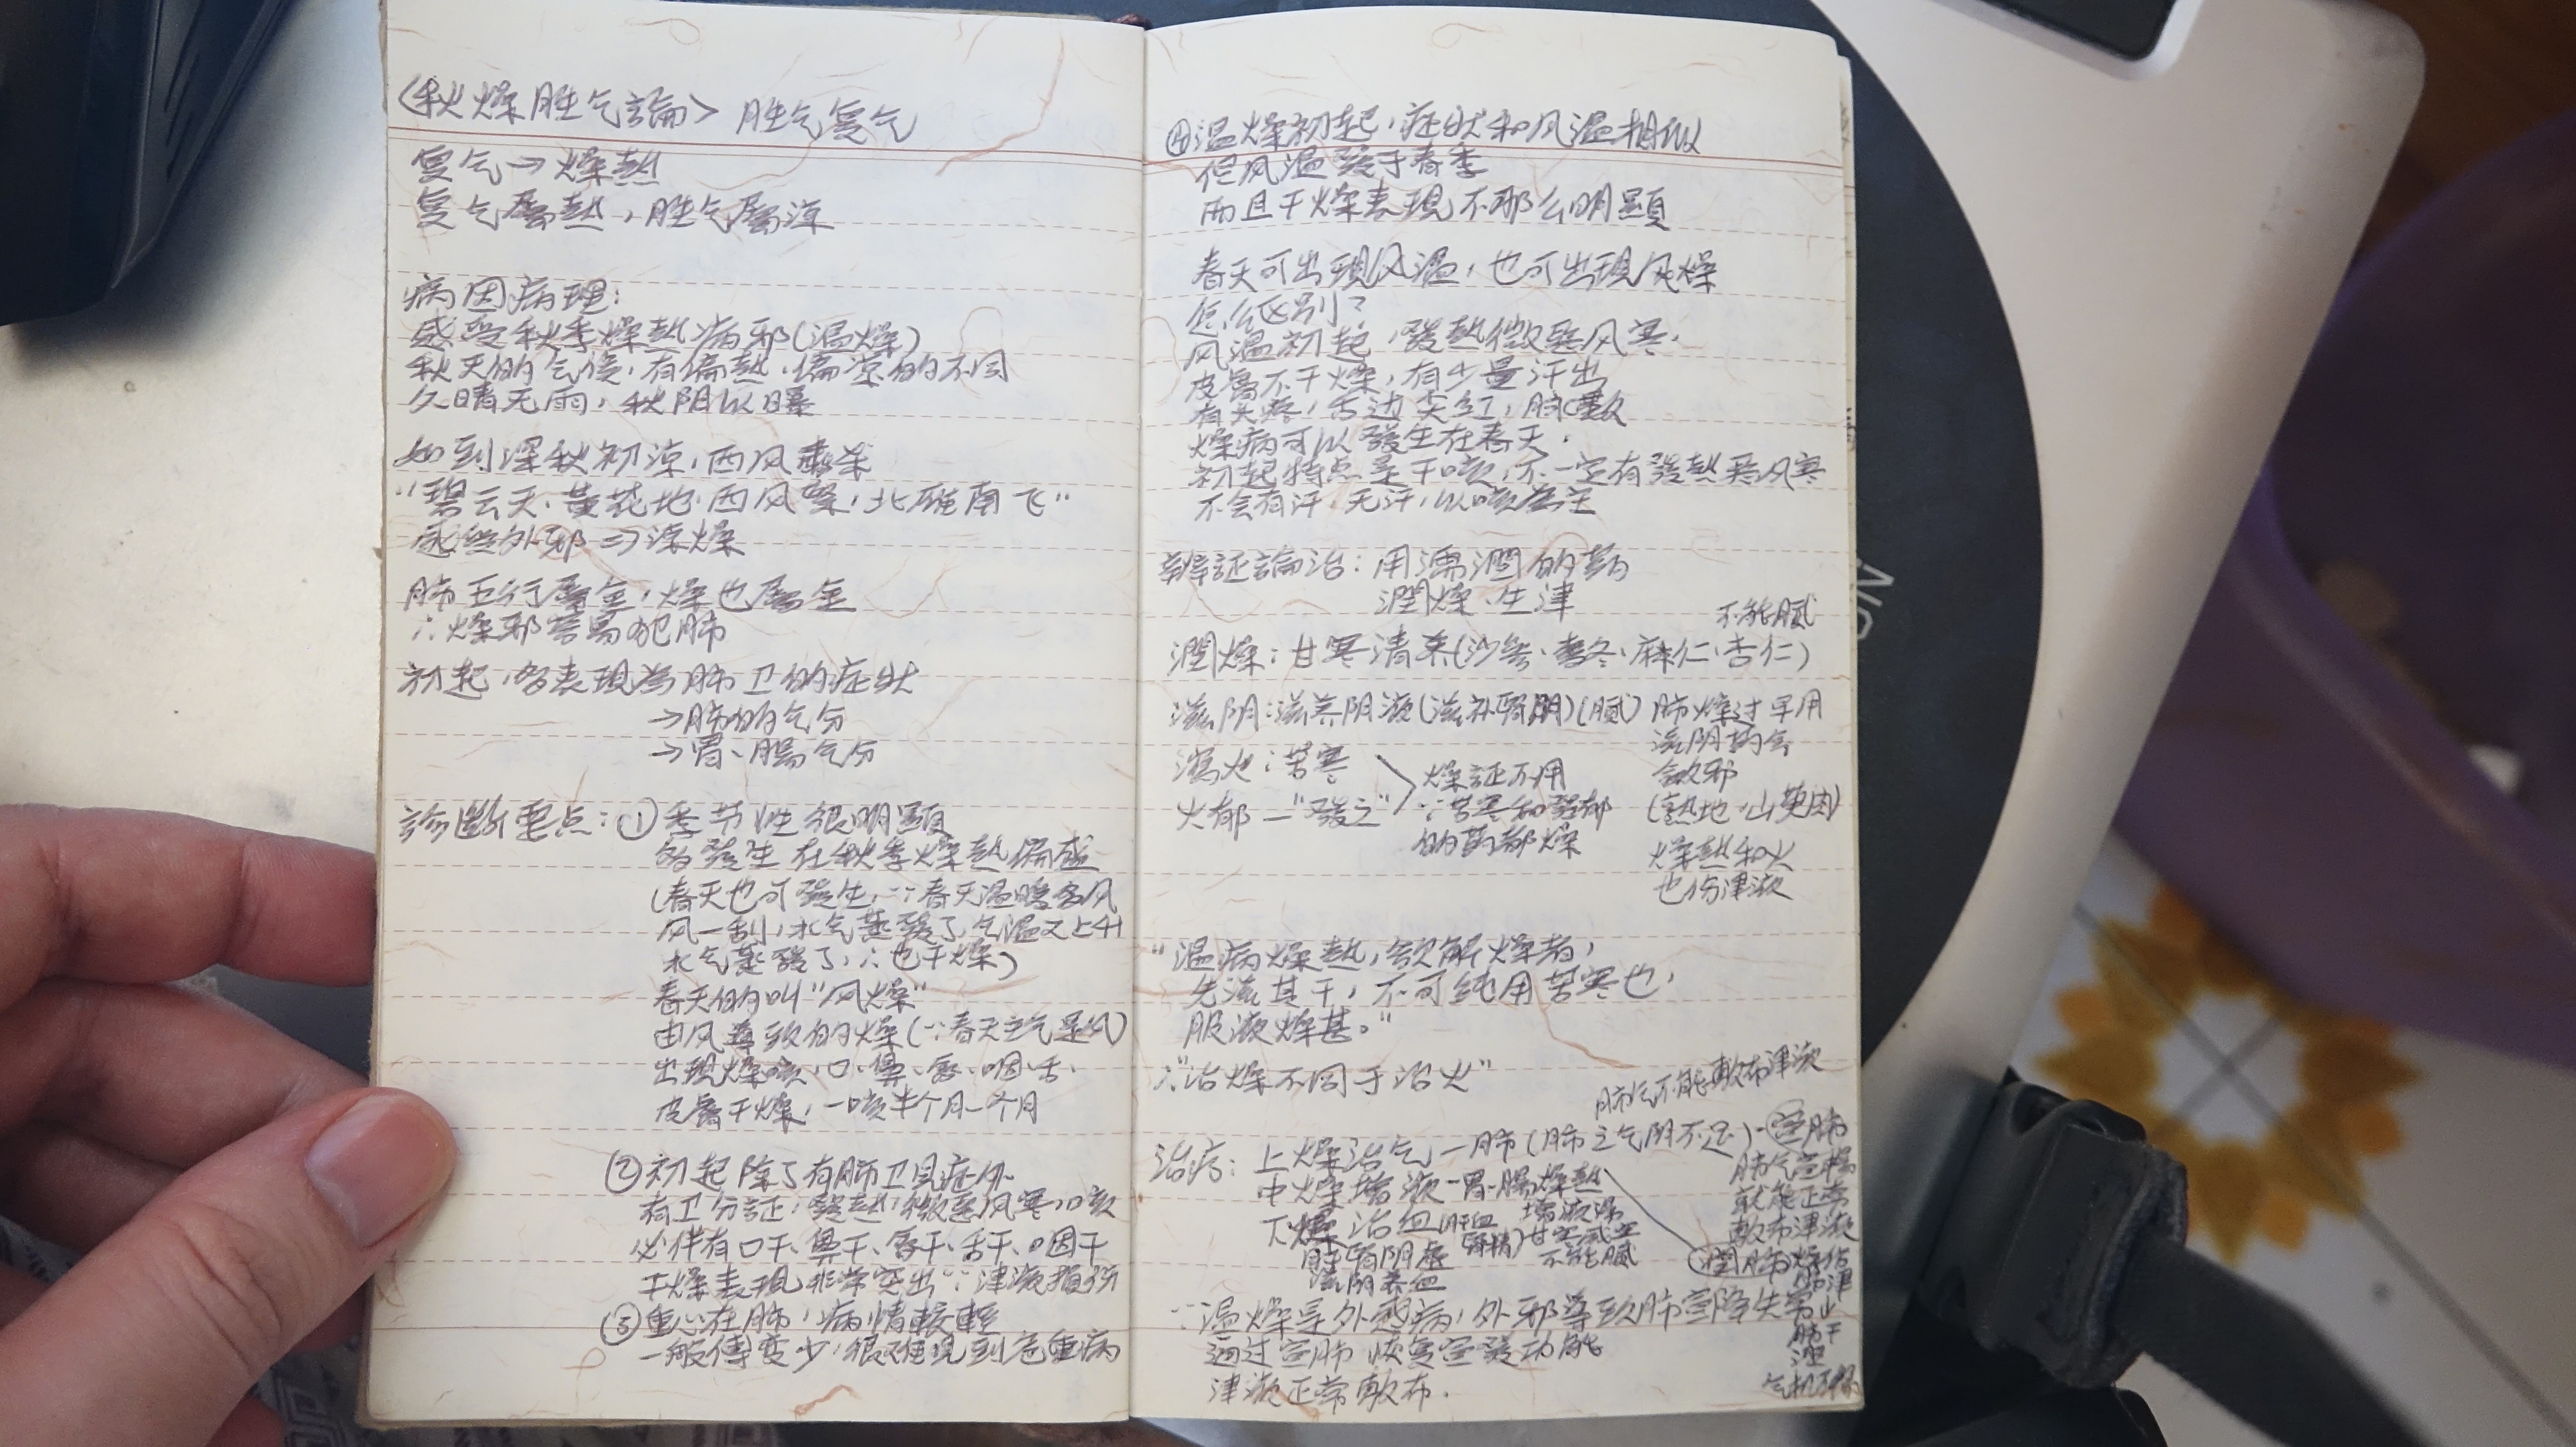 〈秋燥胜气論〉 胜气复气
复气→燥热
复气属热，胜气属凉
病因病理：
感受秋季燥热病邪(温燥)
秋天的气候，有偏热、偏凉的不同
久晴无雨，秋阳以曝
如到深秋初凉，西风肃杀
"碧云天、黄花地、西风紧，北雁南飞"
感受外邪⇒凉燥
肺五行属金，燥也属金
∴燥邪容易犯肺
初起，多表現為肺卫的症状
→肺的气分
→胃、腸气分
診断要点：①季节性很明顕
多發生在秋季燥热偏盛
(春天也可發生，∵春天温暖多风
风一刮，水气蒸發了，气温又上升
水气蒸發了，∴也干燥)
春天的叫"风燥"
由风導致的燥(∵春天之气是风)
出現燥咳，口、鼻、唇、咽、舌、
皮膚干燥，一咳半个月一个月
②初起除了有肺卫見症外
有卫分証，發热，微恶风寒，咳
必伴有口干、鼻干、唇干、舌干、咽干
干燥表現非常突出∵津液損伤
③重心在肺，病情較輕
一般傳变少，很难見到危重病
④温燥初起，症状和风温相似
但风温發于春季
而且干燥表現不那么明顕
春天可出現风温，也可出現风燥
怎么区别？
风温初起，發热微恶风寒，
皮膚不干燥，有少量汗出
有头疼，舌边尖红，脉数
燥病可以發生在春天，
初起特点是干咳，不一定有發热恶风寒
不会有汗，无汗，以咳為主
辨証論治：用濡潤的药
潤燥、生津
不能腻
潤燥：甘寒清柔(沙参、麦冬、麻仁、杏仁)
滋阴：滋养阴液(滋补腎阴)(腻)
肺燥过早用
滋阴药会
敛邪
(熟地、山萸肉)
燥热和火
也伤津液
瀉火：苦寒
火郁—"發之"
燥証不用
∵苦寒和發郁
的药都燥
"温病燥热，欲解燥者，
先滋其干，不可純用苦寒也，
服液燥甚。"
∴"治燥不同于治火"
肺气不能敷布津液
治疗：上燥治气—肺(肺之气阴不足)-宣肺
肺气宣暢
就能正常
敷布津液
中燥增液—胃腸燥热
增液湯
甘寒咸寒
不能腻
下燥治血(肝血
腎精)
肝腎阴虚
滋阴养血
潤肺
肺干
∵温燥是外感病，外邪導致肺宣降失常
通过宣肺恢复宣發功能
津液正常敷布．